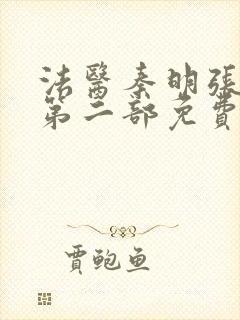 法醫秦明張
第二部免費
賈鮑魚